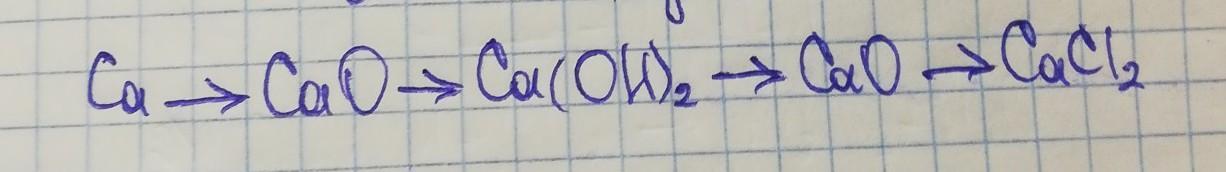 Ca → CaO → Ca(OH)₂ → CaO → CaCl₂